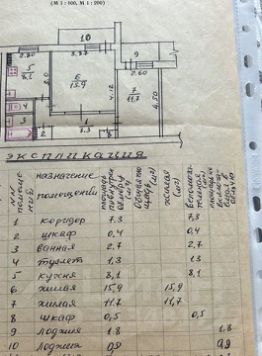 (М 1 : 100, М 1 : 200)
10
2.80
3.87
9
2.60
5
8,1
6
15.9
7
11,7
4.12
4.50
4
3
1
7.3
2
ЭКСПЛИКАЦИЯ
назначение
помещений
жилая (м²)
1 коридор 7.3 7,3
2 шкаф 0,4 0.4
3 ванная 2.7 2.7
4 туалет 1.3 13
5 кухня 8,1 8,1
6 жилая 15,9 15,9
7 жилая 11.7 11.7
8 шкаф 0,5 0.5
9 лоджия 1.8 1.8
10 лоджия 0,9 0,9